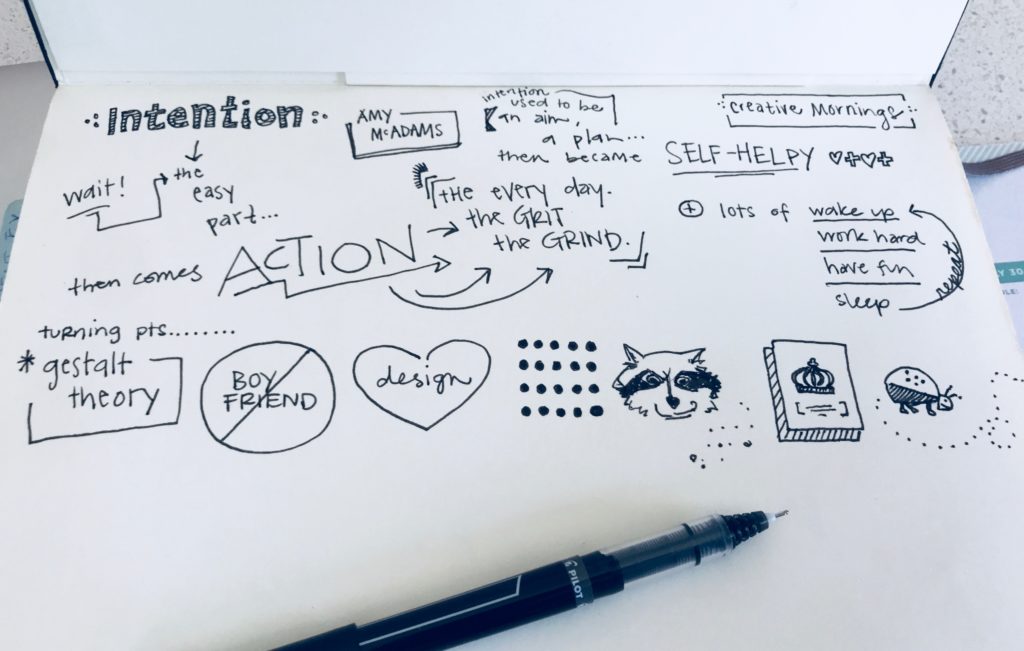 Intention
AMY
McADAMS
intention
used to be
an aim,
a plan...
then became
creative Mornings
SELF-HELPY
wait!
the
easy
part...
then comes
ACTION
THE every day.
the GRIT
the GRIND.
+ lots of
wake up
work hard
have fun
sleep
repeat
turning pts........
* gestalt
theory
BOY
FRIEND
design
PILOT